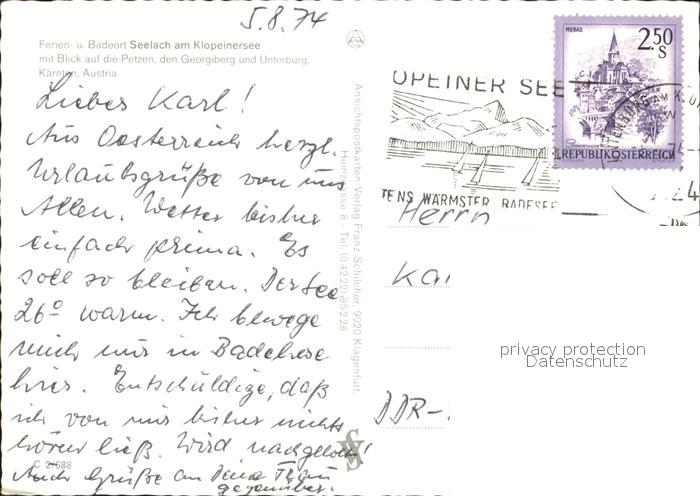 5.8.74
Ferien- u. Badeort Seelach am Klopeinersee
mit Blick auf die Petzen, den Georgiberg und Unterburg,
Kärnten, Austria
Lieber Karl!
Aus Oesterreich herzl.
Urlaubsgrüße von uns
Allen. Wetter bisher
einfach prima. Es
soll so bleiben. Der See
26° warm. Ich bewege
mich nur in Badehose
hier. Entschuldige, daß
ich von mir bisher nichts
hören ließ. Wird nachgeholt!
Auch Grüße an Deine Frau
C 2/688
Ansichtspostkarten-Verlag Franz Schilcher, 9020 Klagenfurt,
Heinzgasse 8 - Tel. (0 42 22) 85 2 28
OPEINER SEE
TENS WÄRMSTER BADESEE
MURAU
2.50
S
REPUBLIK ÖSTERREICH
Herrn
Kar
DDR-
privacy protection
Datenschutz